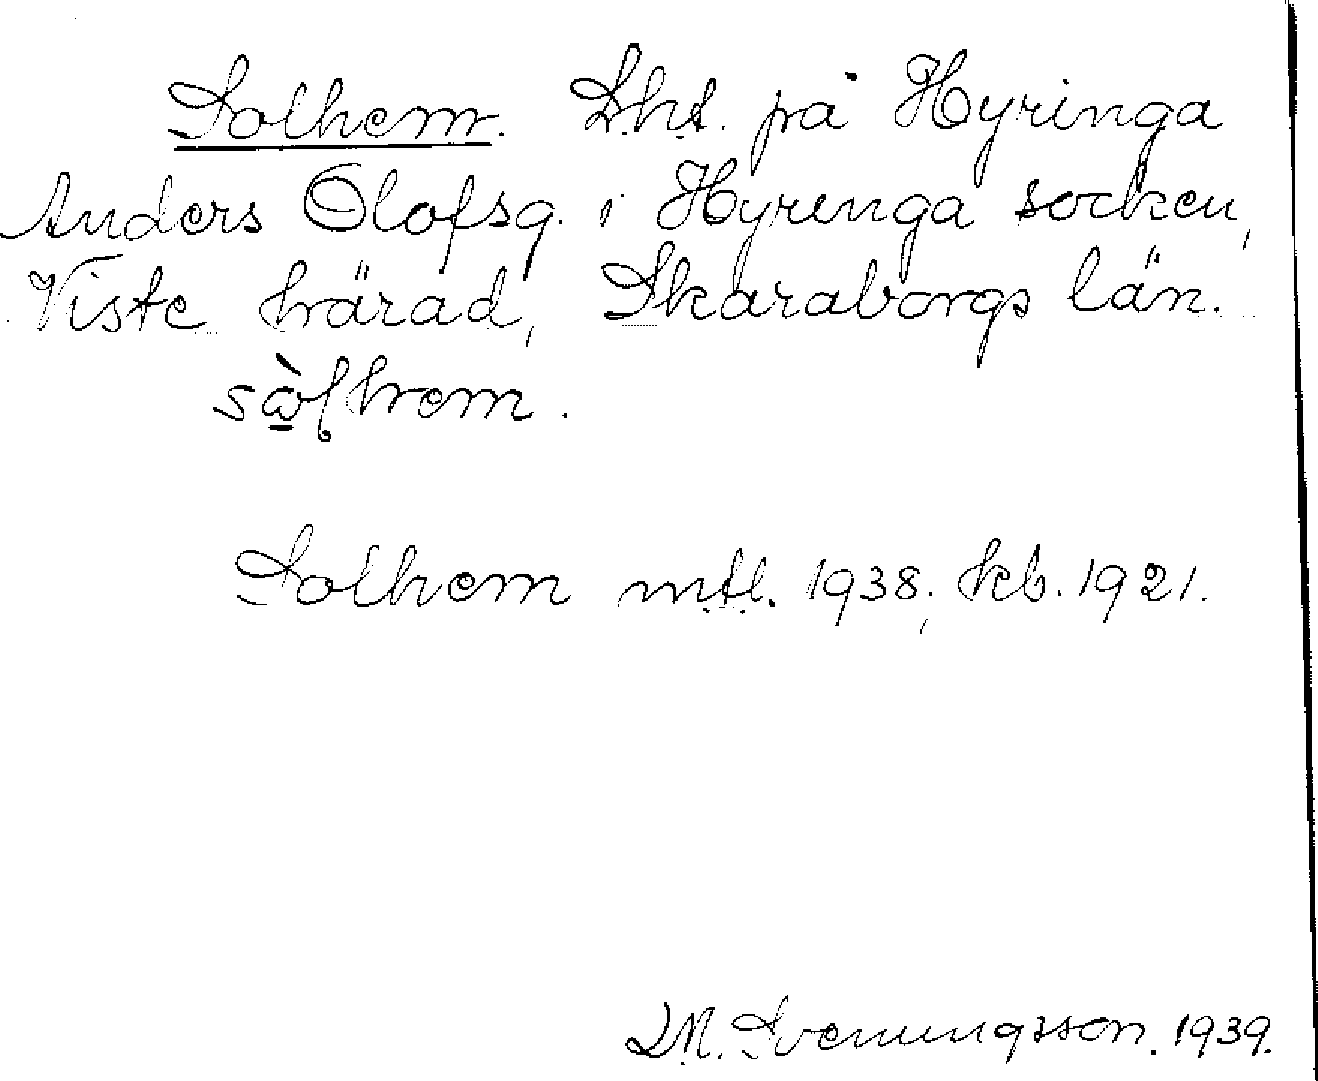 Solhem. Lht. på Hyringa
Anders Olofsg. i Hyringa socken,
Viste härad, Skaraborgs län.
Solhem mtl. 1938; fkb. 1921.
M. Svenungsson. 1939.